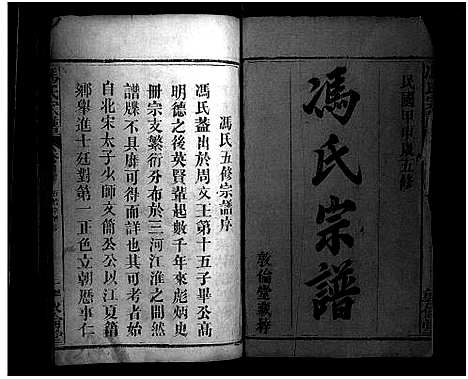 民國甲申歲五修
馮氏宗譜
敦倫堂載梓
馮氏五修宗譜序
馮氏蓋出於周文王第十五子畢公高
明德之後英賢輩起數千年來彪炳史
冊宗支繁衍分布於三河江淮之間然
譜牒不具靡可得而詳也其可考者始
自北宋太子少師文簡公公以江夏籍
鄉舉進士廷對第一正色立朝歷事仁